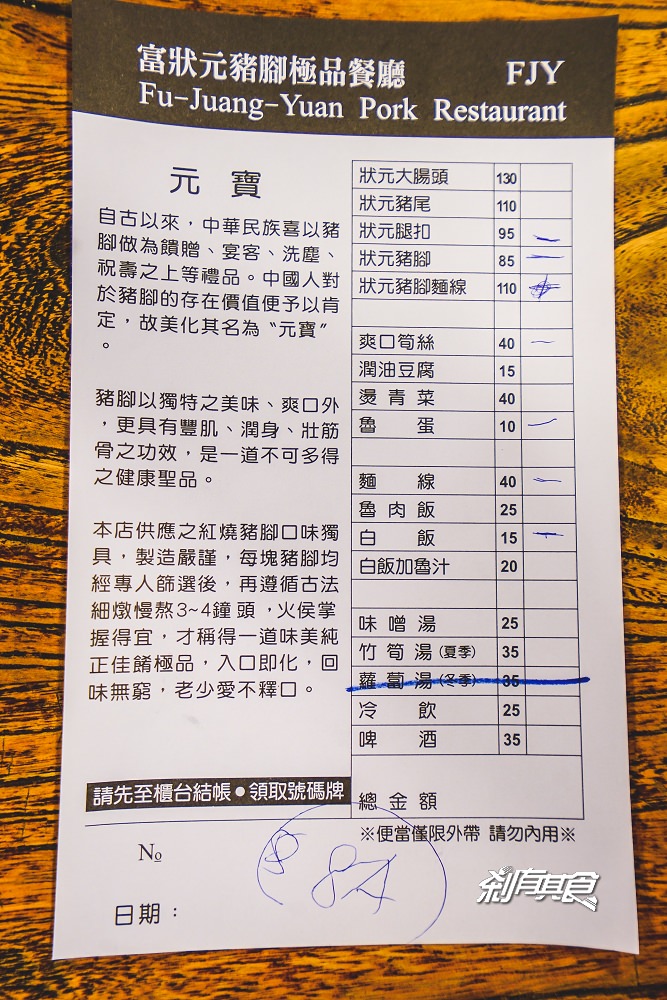 富狀元豬腳極品餐廳 FJY
Fu-Juang-Yuan Pork Restaurant
元寶
自古以來，中華民族喜以豬
腳做為饋贈、宴客、洗塵、
祝壽之上等禮品。中國人對
於豬腳的存在價值便予以肯
定，故美化其名為“元寶”
。
豬腳以獨特之美味、爽口外
，更具有豐肌、潤身、壯筋
骨之功效，是一道不可多得
之健康聖品。
本店供應之紅燒豬腳口味獨
具，製造嚴謹，每塊豬腳均
經專人篩選後，再遵循古法
細燉慢熬3~4鐘頭，火侯掌
握得宜，才稱得一道味美純
正佳餚極品，入口即化，回
味無窮，老少愛不釋口。
請先至櫃台結帳●領取號碼牌
No
日期：
狀元大腸頭 130
狀元豬尾 110
狀元腿扣 95
狀元豬腳 85
狀元豬腳麵線 110
爽口筍絲 40
潤油豆腐 15
燙青菜 40
魯蛋 10
麵線 40
魯肉飯 25
白飯 15
白飯加魯汁 20
味噌湯 25
竹筍湯(夏季) 35
蘿蔔湯(冬季) 35
冷飲 25
啤酒 35
總金額
※便當僅限外帶 請勿內用※
剎有其食